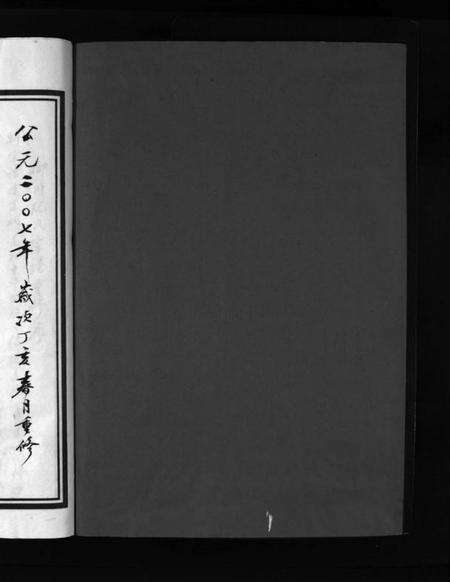 公元二００七年歲次丁亥春月重修